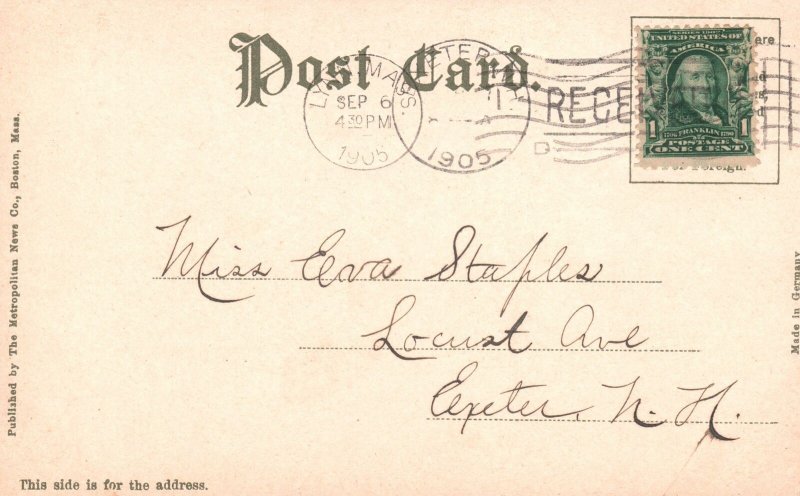 Post Card.
LYNN, MASS.
SEP 6
4 30 PM
1905
EXETER
1905
RECEIVED
SERIES 1902
UNITED STATES OF
AMERICA
1 1
1706 FRANKLIN 1790
POSTAGE
ONE CENT
are
d
For Foreign.
Miss Eva Staples
Locust Ave
Exeter, N. H.
Published by The Metropolitan News Co., Boston, Mass.
Made in Germany
This side is for the address.